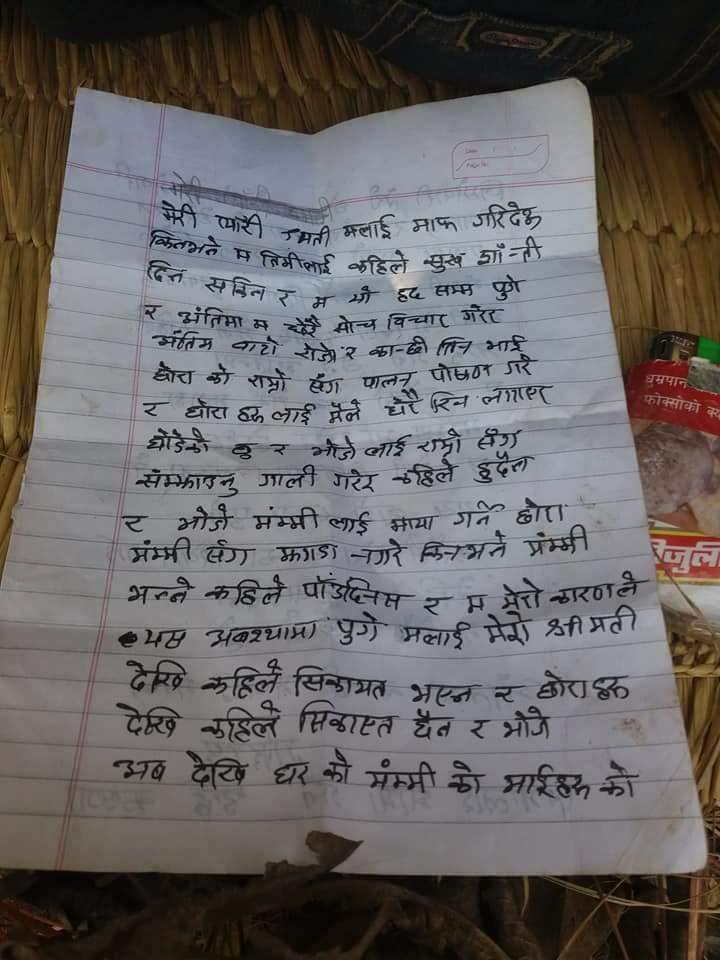 मेरी प्यारी श्रमती मलाई माफ गरिदेऊ
किनभने म तिमीलाई कहिले सुख शान्ती
दिन सकिन र म यो हद सम्म पुगे
र अंतिमा म धेरै सोच विचार गरेर
अंतिम बाटो रोजे र कान्छी तिन भाई
छोरा को राम्रो सँग पालन पोषण गरे
र छोरा हरु लाई मैले धेरै रिन लगाएर
छोडेको छु र भोजे लाई राम्रो सँग
संम्झाउनु गाली गरेर कहिले हुदैन
र भोजे मंम्मी लाई माया गर्ने छोरा
मंम्मी सँग झगडा नगरे किनभने मंम्मी
भन्ने कहिले पाँउदैनस र म मेरो कारणले
यस अवश्थामा पुगे मलाई मेरो श्रीमती
देखि कहिले सिकायत भएन र छोराहरु
देखि कहिले सिकाएत छैन र भोजे
अब देखि घर को मंम्मी को भाईहरु को
धुम्रपान
फोक्सोको